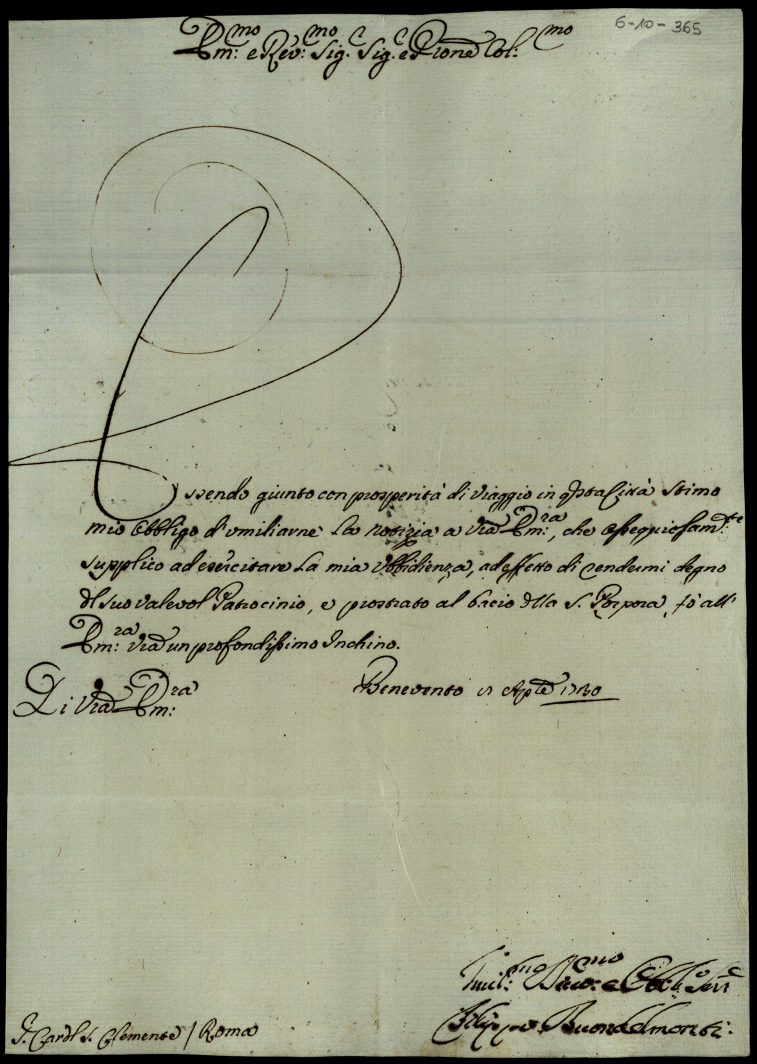 6-10-365
Em:mo e Rev:mo Sig.e Sig.e e Prone Col:mo
Essendo giunto con prosperità di viaggio in qsta Città stimo
mio obbligo d'umiliarne la notizia a Vra Em:ra, che ossequiosam:te
supplico ad esercitare la mia ubbidienza, ad effetto di rendermi degno
dl suo valevol Patrocinio, e prostrato al bacio dlla S. Porpora, fò all'
Em:ra Vra un profondissimo Inchino.
Di Vra Em:ra
Benevento
Umil:mo e
Filippo Buondelmonti.
S. Card.l S. Clemente / Roma